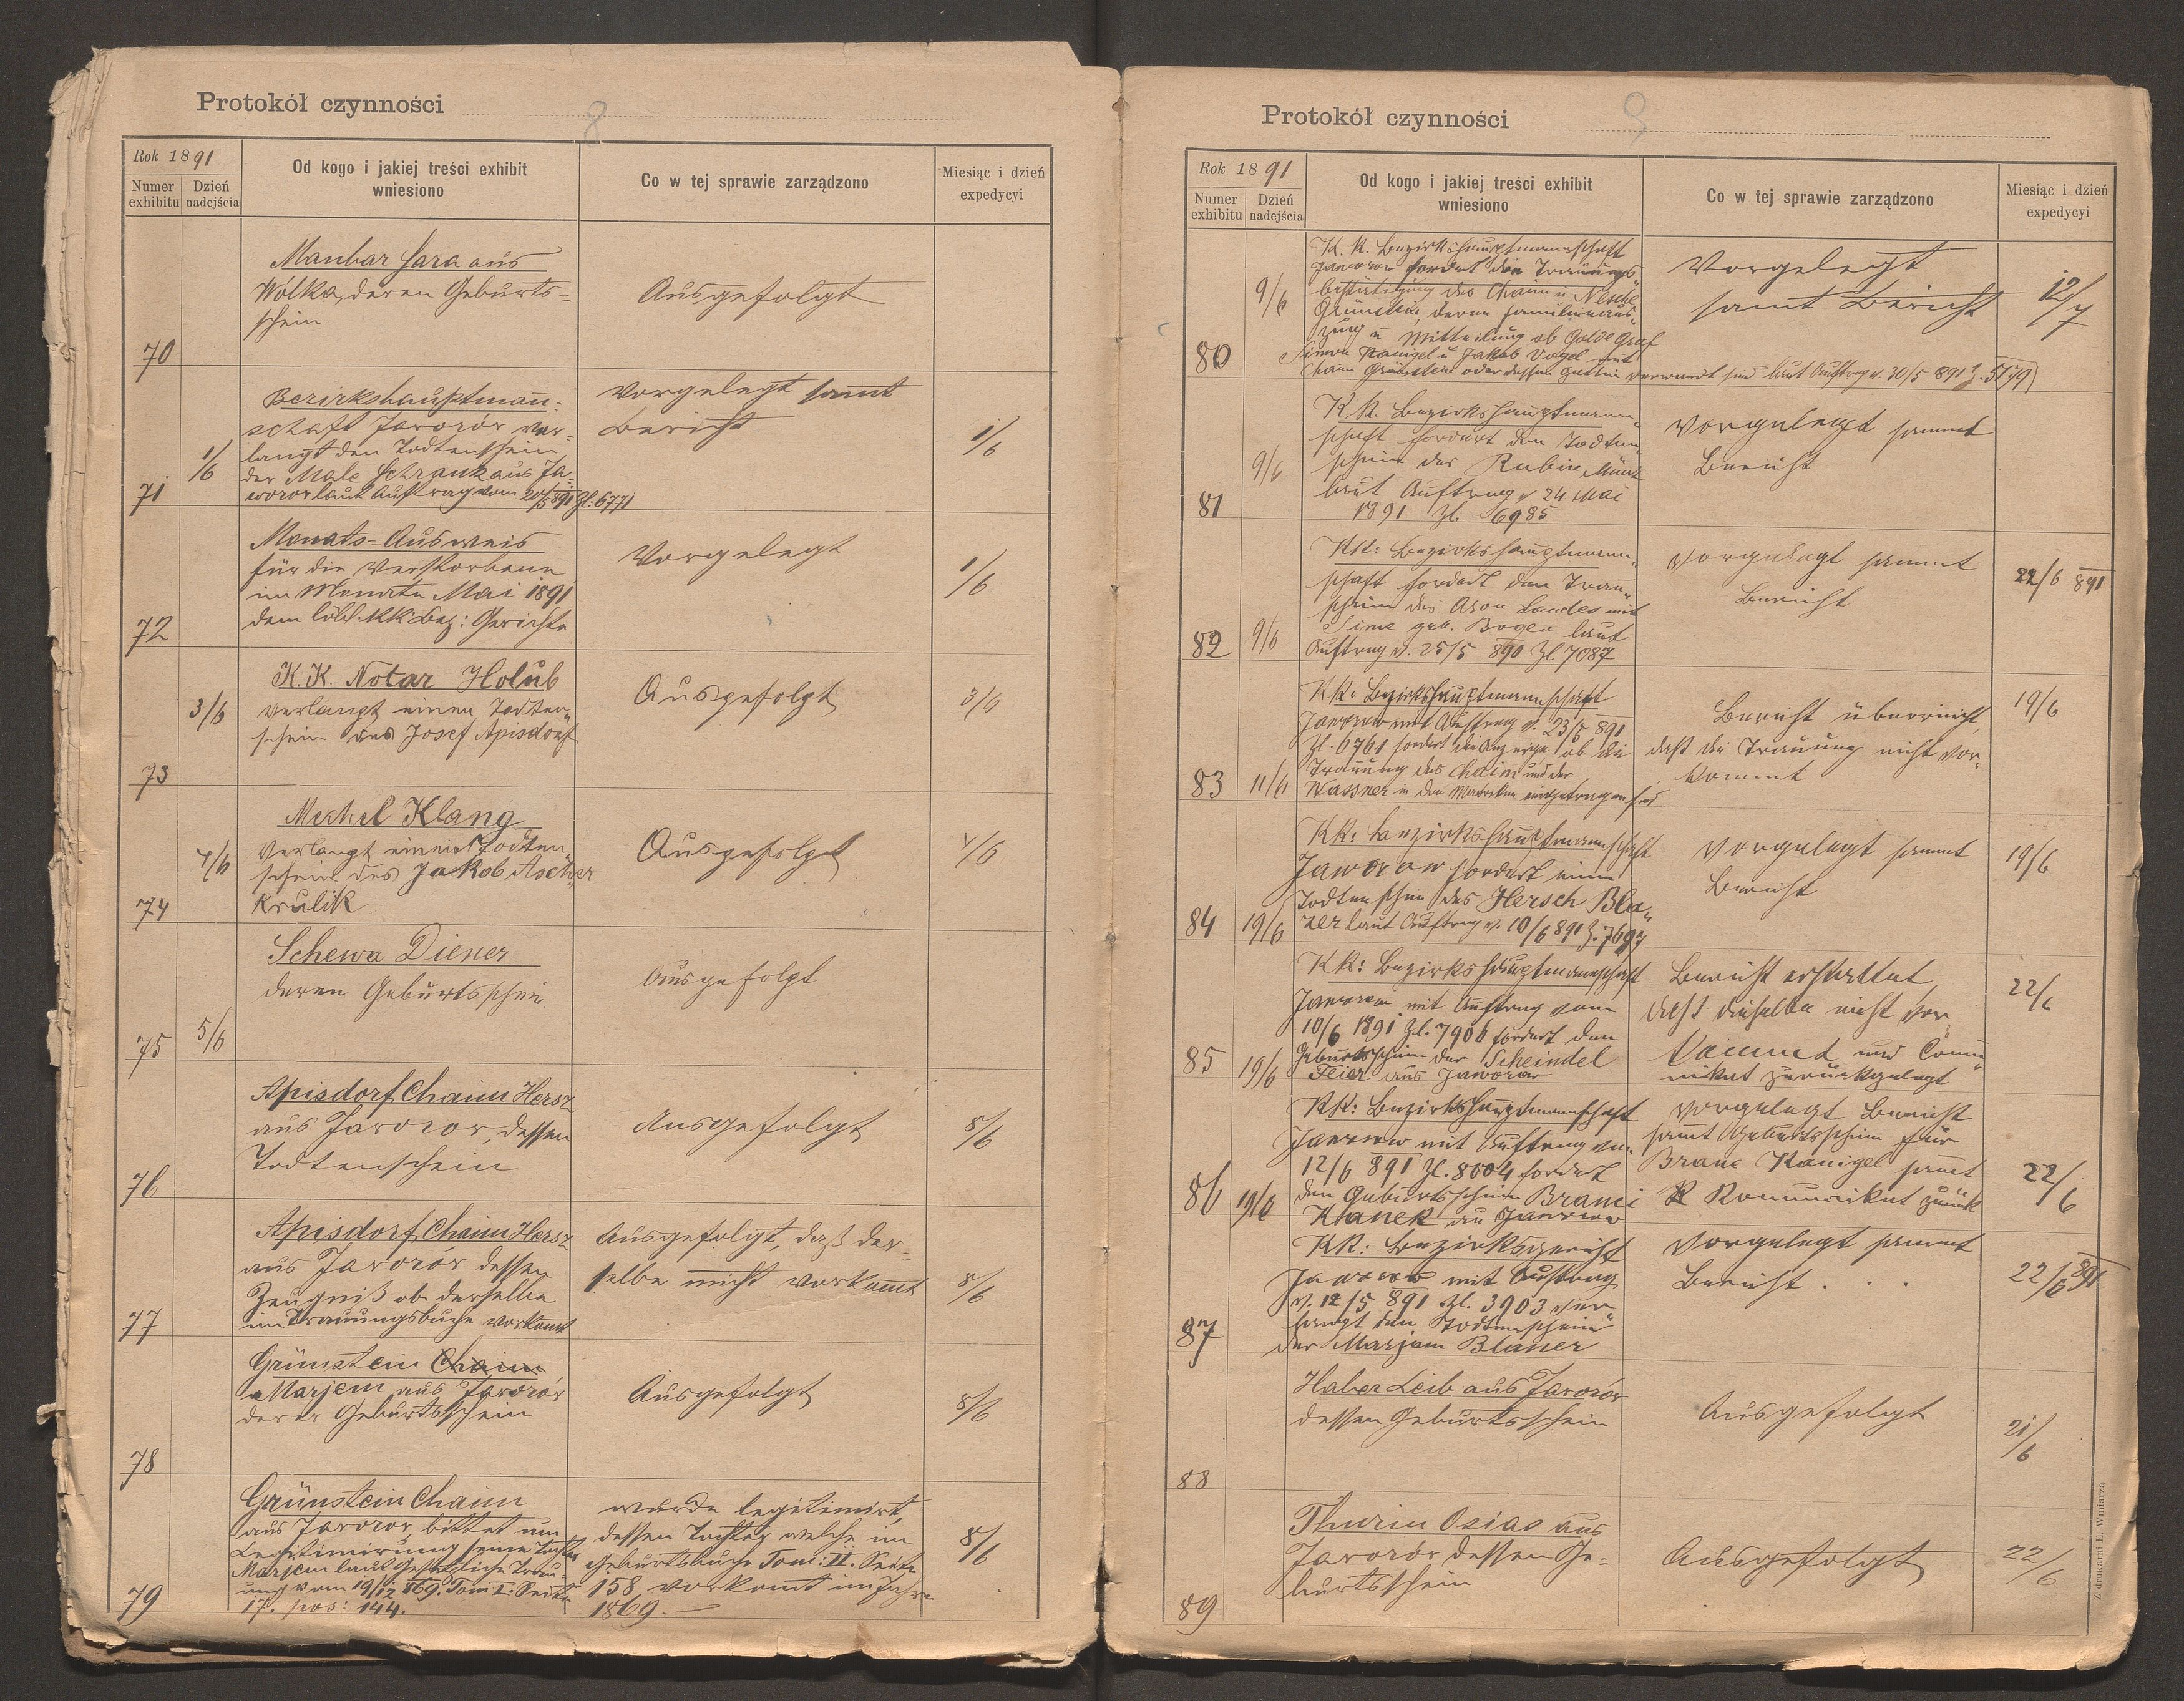 Protokół czynności
8
Rok 1891
Numer exhibitu
Dzień nadejścia
Od kogo i jakiej treści exhibit wniesiono
Co w tej sprawie zarządzono
Miesiąc i dzień expedycyi
Manbar Sara aus
Wólka, deren Geburts=
schein
Ausgefolgt
70
Bezirkshauptman̄=
schaft Javorów ver=
langt den Todtenschein
der Male Schrank aus Ja=
worow laut Auftrag vom 20/5 891 Zl: 6771
Vorgelegt sammt
Bericht
1/6
71
1/6
Monats-Ausweis
für die Verstorbene
im Monate Mai 1891
dem löbl. KK Bez: Gerichte
Vorgelegt
1/6
72
K.K. Notar Holub
verlangt einen Todten„
schein des Josef Apisdorf
Ausgefolgt
3/6
3/6
73
Mechel Klang
verlangt einen Todten„
schein des Jakob Ascher
Krulik
Ausgefolgt
4/6
4/6
74
Schewa Diener
deren Geburtsschein
Ausgefolgt
75
5/6
Apisdorf Chaim Hersz
aus Javorow, dessen
Todtenschein
Ausgefolgt
8/6
76
Apisdorf Chaim Hersz
aus Javorów dessen
Zeugniß ob derselbe
im Trauungsbuche vorkomt
Ausgefolgt, daß der=
selbe nicht vorkomt
8/6
77
Grünstein Chaim
Marjem aus Javorów
deren Geburtsschein
Ausgefolgt
8/6
78
Grünstein Chaim
aus Javorow bittet um
Legitimirung seine Tochter
Marjem laut Gesetzliche Trau=
ung vom 19/12 869. Tom I. Seite
17. pos: 144.
wurde legitimirt,
dessen Tochter welche im
Geburtsbuche Tom: II. Seite
158 vorkomt im Jahre
1869. —
8/6
79
Protokół czynności
9
Rok 1891
Numer exhibitu
Dzień nadejścia
Od kogo i jakiej treści exhibit wniesiono
Co w tej sprawie zarządzono
Miesiąc i dzień expedycyi
K. K. Bezirkshauptmannschaft
Jaworow fordert den Trauungs„
bestätigung des Chaim u
Grünstein, deren Familienaus„
zug u Mitteilung ob Golde Graf
Simon Kanigel u Jakob Vogel mit
Chaim Grünstein oder dessen Gattin verwandt sind laut Auftrag v. 30/5 891 Z.
Vorgelegt
samt Bericht
12/7
9/6
80
K. K. Bezirkshauptmann„
schaft fordert den Todten„
schein des Rubin
laut Auftrag v 24. Mai
1891 Zl. 6985
Vorgelegt sammt
Bericht
9/6
81
KK: Bezirkshauptmann„
schaft fordert den Trau„
schein des Aron Landes mit
Sime geb. Bogen laut
Auftrag v. 25/5 890 Zl. 7087
Vorgelegt sammt
Bericht
22/6 891
82
9/6
KK: Bezirkshauptmannschaft
Jaworow mit Auftrag v. 23/5 891
Zl. 6761 fordert die Anzeige ob die
Trauung des Chaim und der
Wassner in den Matriken eingetragen sind
Bericht überreicht,
daß die Trauung nicht vor„
kommt
19/6
83
11/6
KK: Bezirkshauptmannschaft
Jaworow fordert einen
Todtenschein des Hersch Bla„
zer laut Auftrag v. 10/6 891 Z. 7697
Vorgelegt sammt
Bericht
19/6
84
19/6
KK: Bezirkshauptmannschaft
Jaworow mit Auftrag vom
10/6 1891 Zl. 7906 fordert den
Geburtsschein der Scheindel
Feier aus Jaworow
Bericht erstattet,
daß dieselbe nicht vor„
kommt und Comu„
nikat zurückgelegt
22/6
85
19/6
KK: Bezirkshauptmannschaft
Jaworow mit Auftrag vom
12/6 891 Zl. 8504 fordert
den Geburtsschein Branci
Kanek aus Jaworow
Vorgelegt Bericht
samt Geburtsschein für
Brane Kanigel samt
Komunikat zurück
22/6
86
19/6
KK: Bezirksgericht
Jaworow mit Auftrag
v. 12/5 891 Zl. 3903 ver„
langt den Todtenschein
der Marjam Blaner
Vorgelegt sammt
Bericht . . .
22/6 891
87
Haber Leib aus Javorów
dessen Geburtsschein
Ausgefolgt
21/6
88
Thurin Osias aus
Javorów dessen Ge=
burtsschein
Ausgefolgt
22/6
89
Z drukarni E. Winiarza